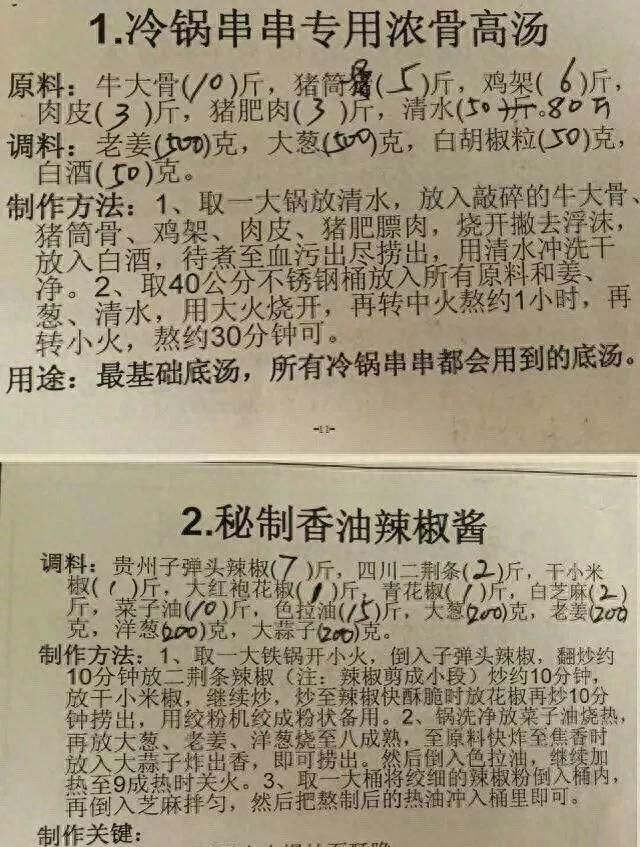 1.冷锅串串专用浓骨高汤
原料：牛大骨(10)斤，猪筒骨(5)斤，鸡架(6)斤，
肉皮(3)斤，猪肥肉(3)斤，清水(50斤。80斤
调料：老姜(500)克，大葱(500)克，白胡椒粒(50)克，
白酒(50)克。
制作方法：1、取一大锅放清水，放入敲碎的牛大骨、
猪筒骨、鸡架、肉皮、猪肥膘肉，烧开撇去浮沫，
放入白酒，待煮至血污出尽捞出，用清水冲洗干
净。2、取40公分不锈钢桶放入所有原料和姜、
葱、清水，用大火烧开，再转中火熬约1小时，再
转小火，熬约30分钟可。
用途：最基础底汤，所有冷锅串串都会用到的底汤。
-11-
2.秘制香油辣椒酱
调料：贵州子弹头辣椒(7)斤，四川二荆条(2)斤，干小米
椒(1)斤，大红袍花椒(1)斤，青花椒(1)斤，白芝麻(2)
斤，菜子油(10)斤，色拉油(15)斤，大葱(200)克，老姜(200)
克，洋葱(200)克，大蒜子(200)克。
制作方法：1、取一大铁锅开小火，倒入子弹头辣椒，翻炒约
10分钟放二荆条辣椒（注：辣椒剪成小段）炒约10分钟，
放干小米椒，继续炒，炒至辣椒快酥脆时放花椒再炒10分
钟捞出，用绞粉机绞成粉状备用。2、锅洗净放菜子油烧热，
再放大葱、老姜、洋葱烧至八成熟，至原料快炸至焦香时
放入大蒜子炸出香，即可捞出。然后倒入色拉油，继续加
热至9成热时关火。3、取一大桶将绞细的辣椒粉倒入桶内，
再倒入芝麻拌匀，然后把熬制后的热油冲入桶里即可。
制作关键：